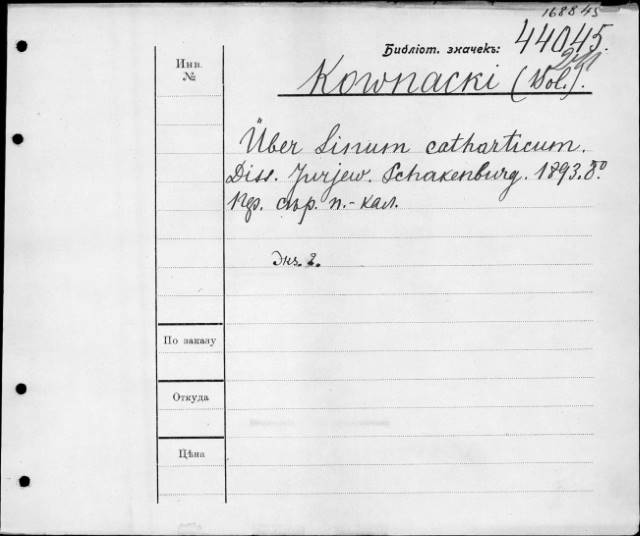 168845
Библіот. значекъ: 44045.
Инв.
№
Kownacki (Wol.).
Über Linum catharticum.
Diss. Jurjew. Schakenburg. 1893. 8º
Кр. сѣр. п.-кал.
Экз. 2.
По заказу
Откуда
Цѣна